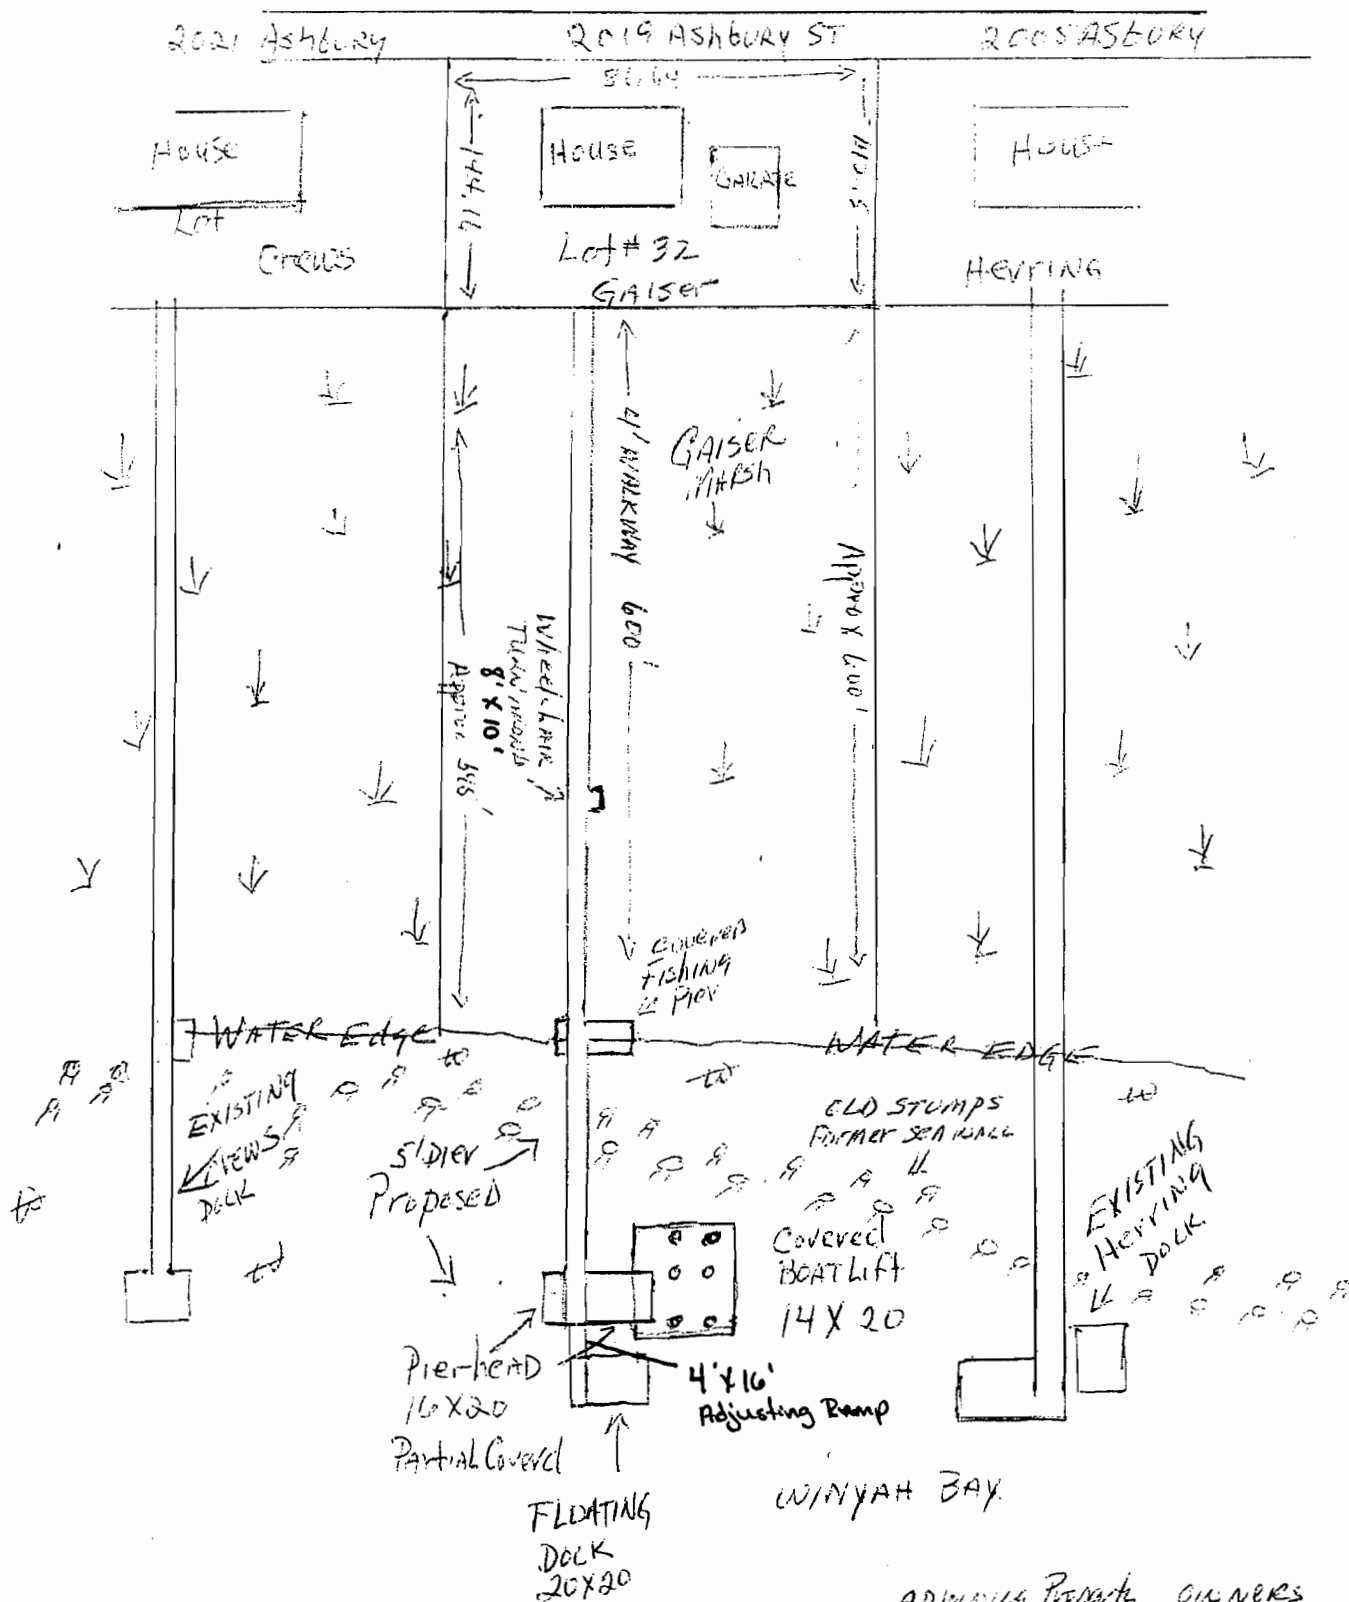 2021 Ashbury
2019 ASHBURY ST
2005 ASBURY
House
Lot
Crews
144.12
House
GARAGE
Lot # 32
GAISER
House
HERRING
4' WALKWAY 600'
GAISER
MARSH
Approx 600'
Wheelchair
TURN AROUND
8' X 10'
Approx
COVERED
FISHING
Pier
WATER Edge
WATER EDGE
EXISTING
CREWS
DOCK
5' Pier
Proposed
OLD STUMPS
Former SEAWALL
EXISTING
Herring
DOCK
Covered
BOAT Lift
14 X 20
Pier-heAD
16 X 20
PArtiAL Covered
4' X 16'
Adjusting Ramp
FLOATING
DOCK
20 X 20
WINYAH BAY.
OWNERS